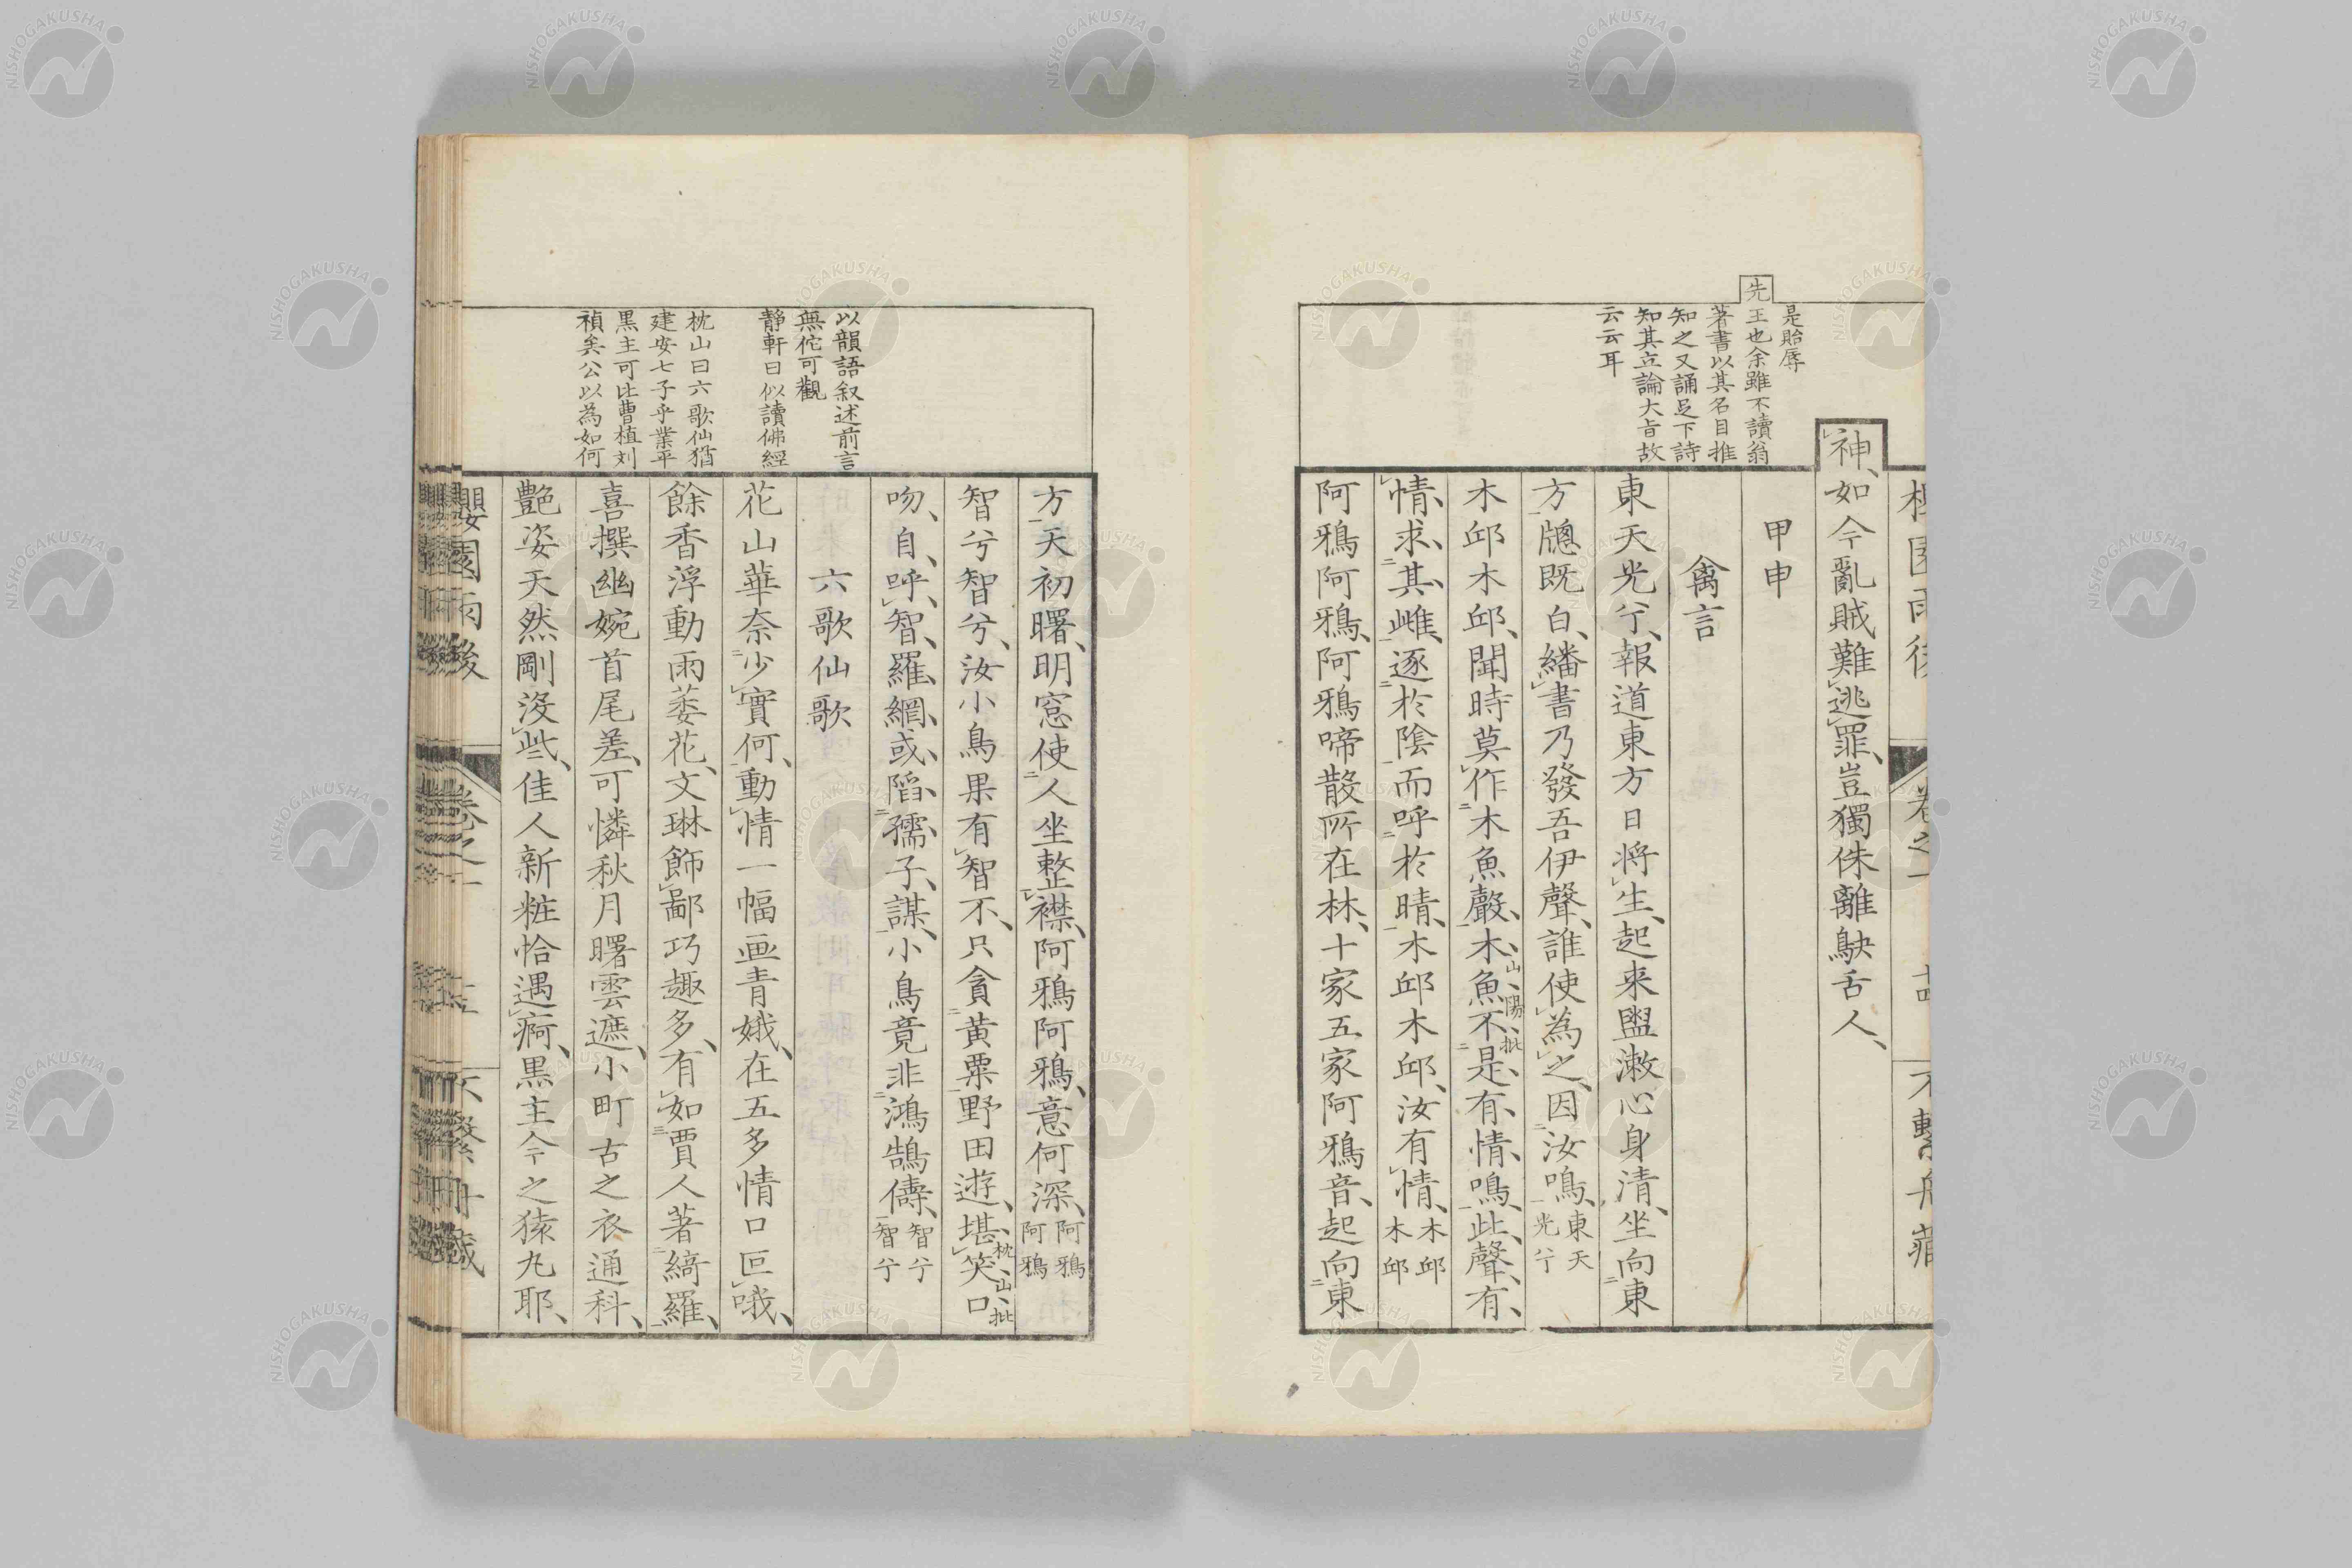 是貽辱
先王也余雖不讀翁
著書以其名目推
知之又誦足下詩
知其立論大旨故
云云耳
神如今亂賊難逃罪豈獨侏離鴃舌人
甲申
禽言
東天光兮報道東方日將生起来盥漱心身清坐向東
方牕既白繙書乃發吾伊聲誰使為之因汝鳴東天光兮
木邱木邱聞時莫作木魚聲木魚不是有情鳴此聲有
山陽批
情求其雌逐於陰而呼於晴木邱木邱汝有情木邱木邱
阿鴉阿鴉阿鴉啼散所在林十家五家阿鴉音起向東
以韻語叙述前言
無佗可觀
静軒曰似讀佛經
枕山曰六歌仙猶
建安七子乎業平
黒主可比曹植刘
禎矣公以為如何
方天初曙明窓使人坐整襟阿鴉阿鴉意何深阿鴉阿鴉
智兮智兮汝小鳥果有智不只貪黄粟野田遊堪笑口
枕山批
吻自呼智羅網或陷孺子謀小鳥竟非鴻鵠儔智兮智兮
六歌仙歌
花山華奈少實何動情一幅画青娥在五多情口叵哦
餘香浮動雨萎花文琳飾鄙巧趣多有如賈人著綺羅
喜撰幽婉首尾差可憐秋月曙雲遮小町古之衣通科
艶姿天然剛沒些佳人新粧恰遇痾黒主今之猿丸耶
NISHOGAKUSHA